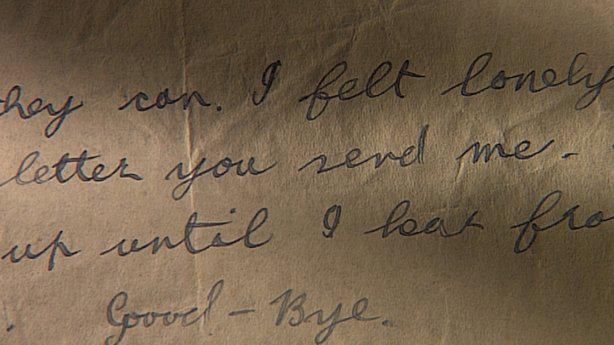 they can. I felt lonely
letter you send me.
up until I hear fro
Good-Bye.